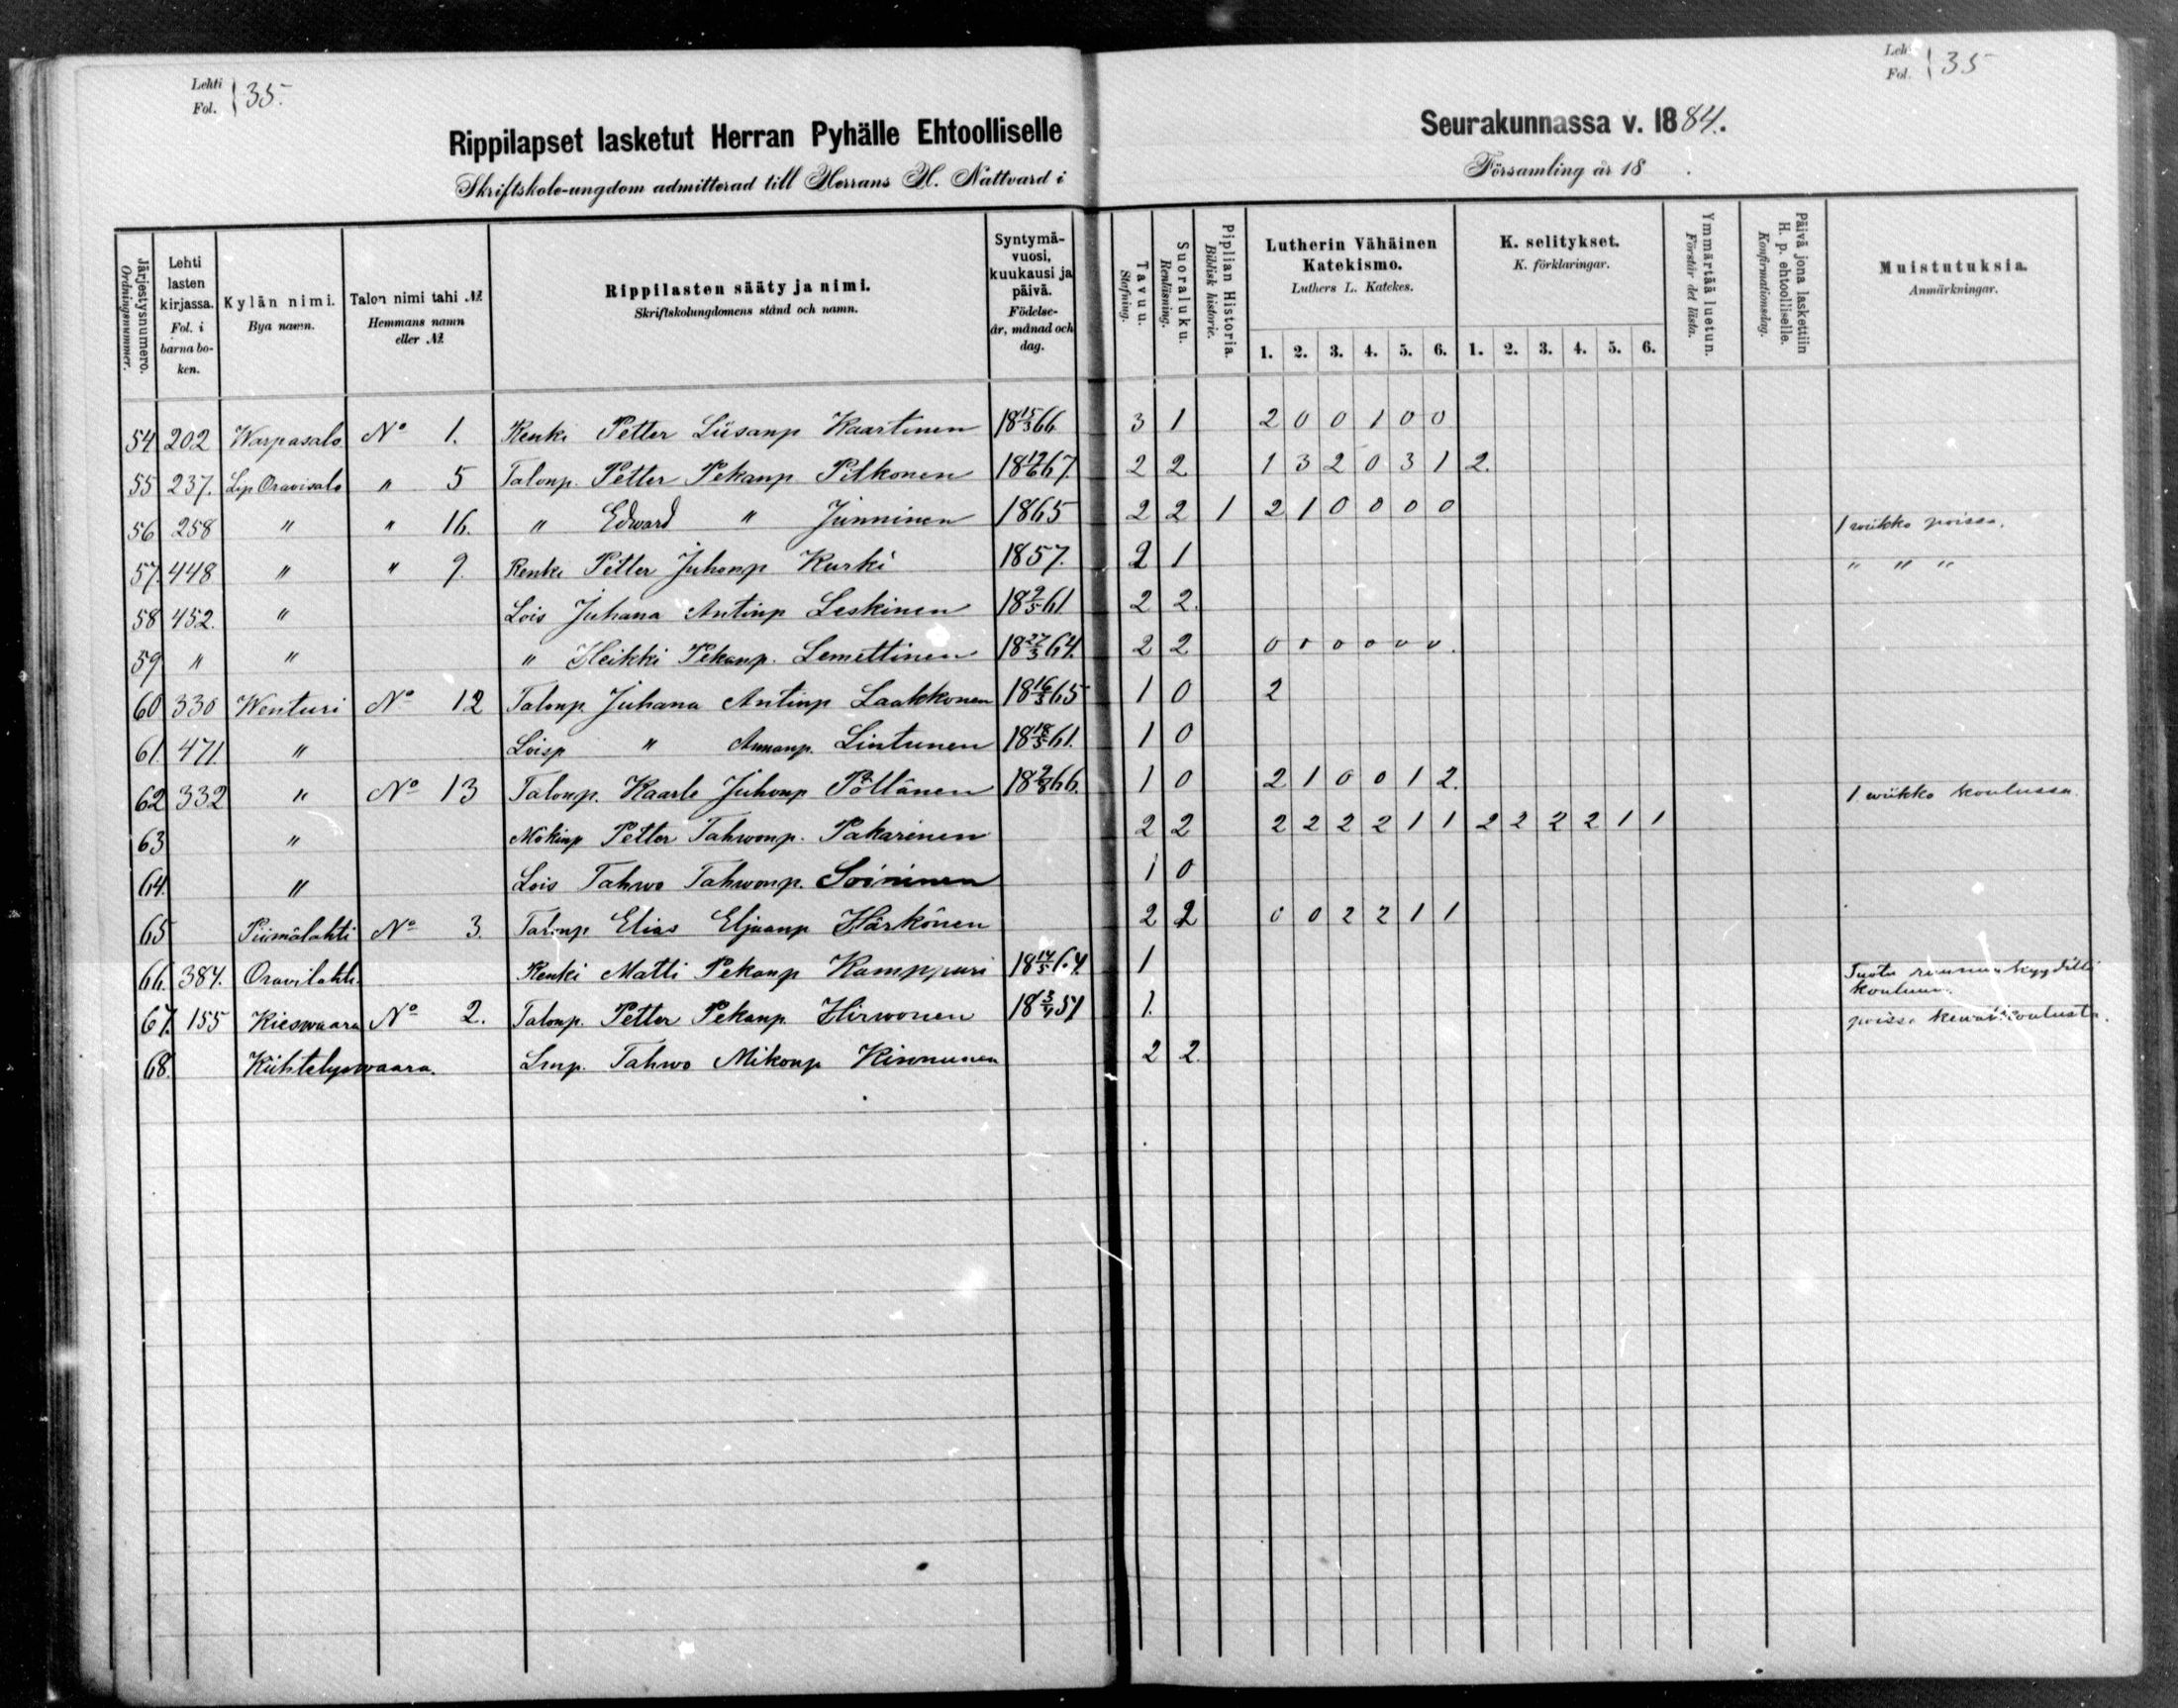 Lehti
Fol. } 35.
Rippilapset lasketut Herran Pyhälle Ehtoolliselle
Skriftskole-ungdom admitterad till Herrans H. Nattvard i
Leh
Fol. } 35
Seurakunnassa v. 1884.
Församling år 18 .
Järjestysnumero. Ordningsnummer.
Lehti lasten kirjassa. Fol. i barna bo-ken.
Kylän nimi. Bya namn.
Talon nimi tahi № Hemmans namn eller №
Rippilasten sääty ja nimi. Skriftskolungdomens stånd och namn.
Syntymä-vuosi, kuukausi ja päivä. Födelse-år, månad och dag.
Tavuu. Stafning.
Suoraluku. Renläsning.
Piplian Historia. Biblisk historie.
Lutherin Vähäinen Katekismo. Luthers L. Katekes.
1. 2. 3. 4. 5. 6.
K. selitykset. K. förklaringar.
1. 2. 3. 4. 5. 6.
Ymmärtää luetun. Förstår det lästa.
Päivä jona laskettiin H. p. ehtoolliselle. Konfirmationsdag.
Muistutuksia. Anmärkningar.
54 202 Warpasalo No 1. Renki Petter Liisanp Kaartinen 18 15/3 66 3 1 2 0 0 1 0 0
55 237. Lip Oravisalo " 5 Talonp. Petter Pekanp Pitkonen 18 12/6 67. 2 2 1 3 2 0 3 1 2.
56 258 " " 16. " Edward " Junninen 1865 2 2 1 2 1 0 0 0 0 1 wiikko poissa.
57. 448 " " 9. Renki Petter Juhonp Kurki 1857. 2 1 " " "
58 452. " Lois Juhana Antinp Leskinen 18 2/5 61 2 2.
59 " " " Heikki Pekanp. Lemettinen 18 27/3 64. 2 2 0 0 0 0 0 0.
60 330 Wenturi No 12 Talonp Juhana Antinp Laakkonen 18 16/3 65 1 0 2
61. 471 " Loisp " Annanp. Lintunen 18 18/5 61. 1 0
62 332 " No 13 Talonp. Kaarle Juhonp Pöllänen 18 2/8 66. 1 0 2 1 0 0 1 2. 1 wiikko koulussa.
63 " Mökinp Petter Tahwonp. Pakarinen 2 2 2 2 2 2 1 1 2 2 2 2 1 1
64. " Lois Tahwo Tahwonp. Soininen 1 0
65 Piimälahti No 3. Talonp Elias Eljaanp Härkönen 2 2 0 0 2 2 1 1
66. 384. Oravilahti Renki Matti Pekanp Kamppuri 18 14/5 64. 1 Tuotu kouluun.
67. 155 Kieswaara No 2. Talonp. Petter Pekanp. Hirwonen 18 3/4 51 1. poissa koulusta.
68. Kiihtelyswaara. Lmp. Tahwo Mikonp Kinnunen 2 2.